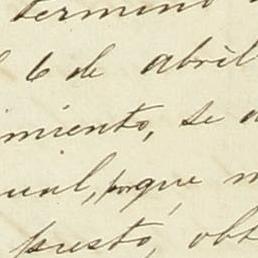 termino
6 de abril
imiento, se
ual, porque
puesto, obt